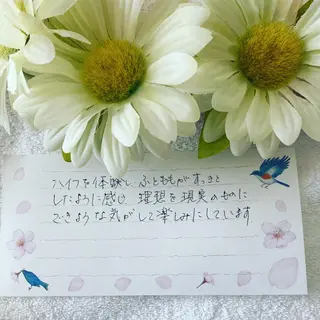 ハイフを体験し、ふとももがすっきと
したように感じ 理想を現実のものに
できそうな気がして楽しみにしています